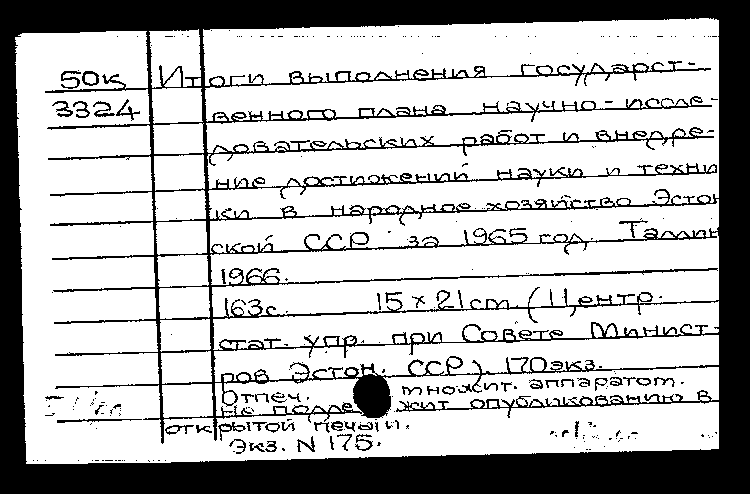 50к Итоги выполнения государст-
3324 венного плана научно-иссле-
довательских работ и внедре-
ние достижений науки и техни
ки в народное хозяйство Эстон
ской ССР за 1965 год. Таллин
1966.
163с. 15 × 21 cm. (Центр.
стат. упр. при Совете Минист-
ров Эстон. ССР). 170 экз.
Отпеч. множит. аппаратом.
не подлежит опубликованию в
открытой печати.
Экз. N 175.